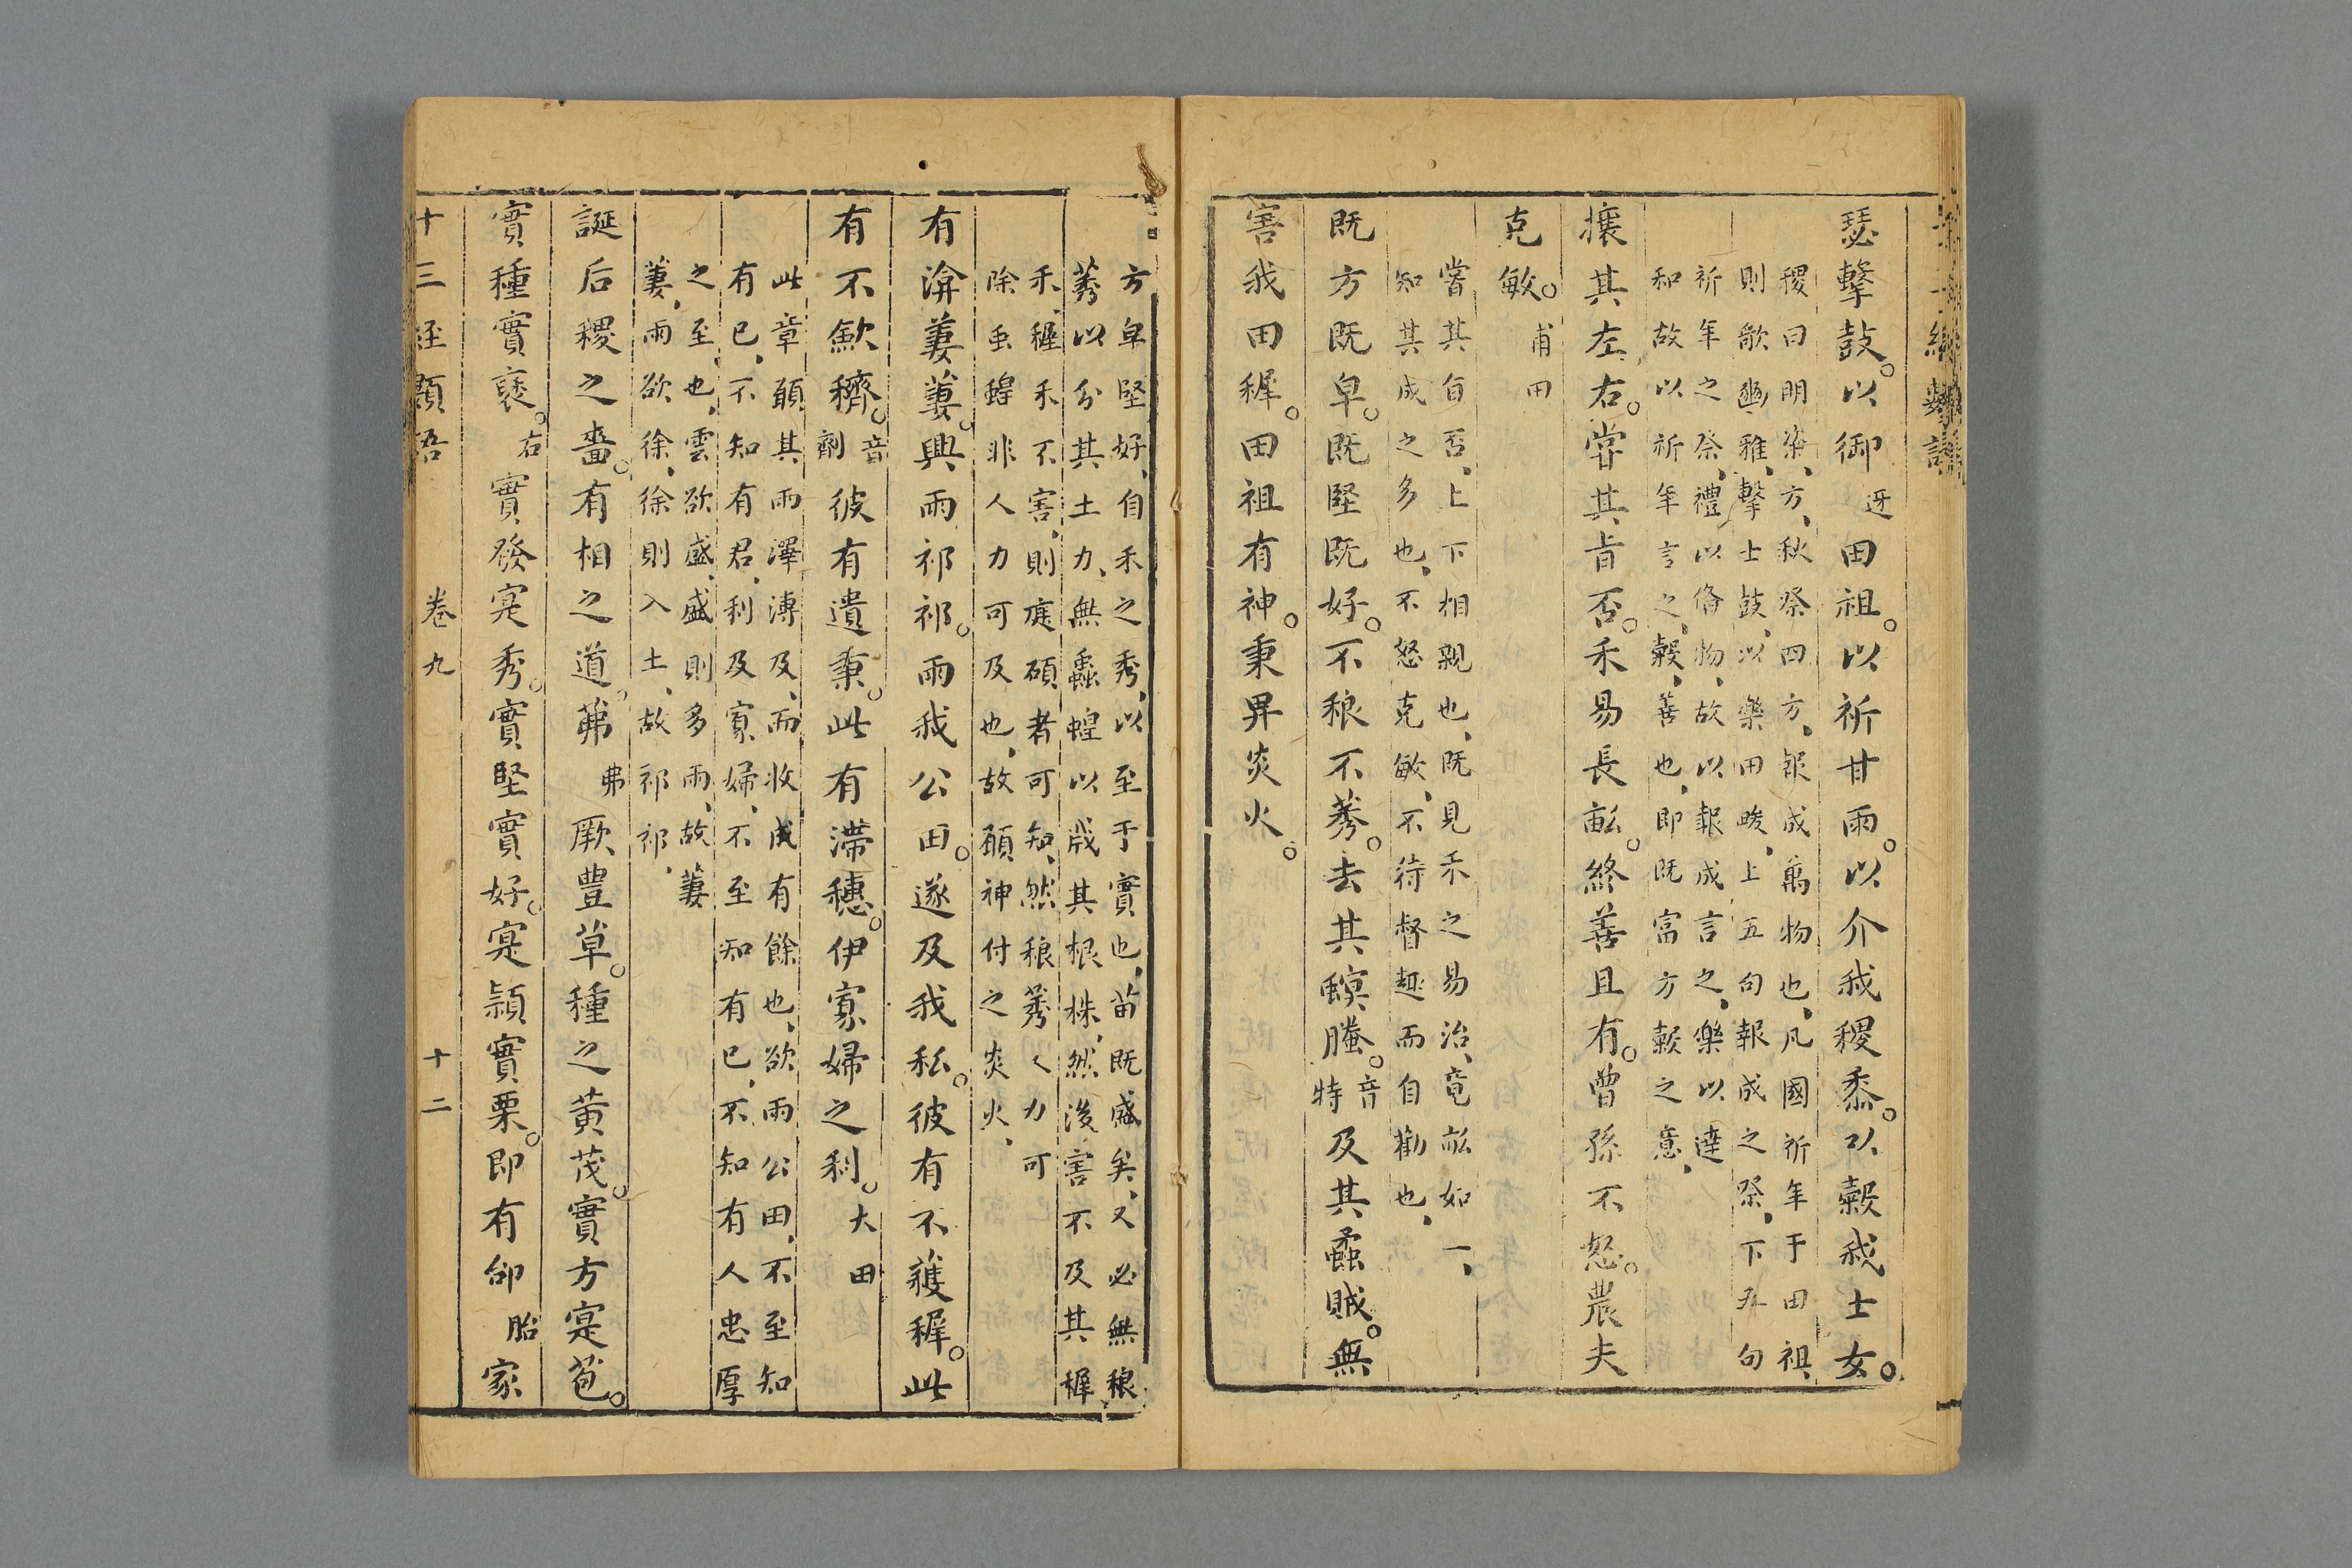 瑟擊鼓。以御迓田祖。以祈甘雨。以介我稷黍。以穀我士女。
稷曰明粢、方、秋祭四方、報成萬物也、凡國祈年于田祖、
則龡豳雅、擊土鼓、以樂田畯、上五句報成之祭、下五句
祈年之祭、禮以俻物、故以報成言之、樂以達
和故以祈年言之、穀、善也、即既富方穀之意、
攘其左右。嘗其旨否。禾易長畝。終善且有。曾孫不怒。農夫
克敏。甫田
嘗其旨否、上下相親也、既見禾之易治、竟畝如一、
知其成之多也、不怒克敏、不待督趣而自勸也、
既方既皁。既堅既好。不稂不莠。去其螟螣。音特及其蟊賊。無
害我田穉。田祖有神。秉畀炎火。
方皁堅好、自禾之秀、以至于實也、苗既盛矣、又必無稂
莠以分其土力、無蟲蝗以戕其根株、然後害不及其穉
禾、穉禾不害、則庭碩者可知、然稂莠人力可
除虫蝗非人力可及也、故願神付之炎火、
有渰萋萋。興雨祁祁。雨我公田。遂及我私。彼有不穫穉。此
有不斂穧。音劑彼有遺秉。此有滯穗。伊寡婦之利。大田
此章願其雨澤溥及、而收成有餘也、欲雨公田、不至知
有已、不知有君、利及寡婦、不至知有已、不知有人忠厚
之至也、雲欲盛、盛則多雨、故萋
萋、雨欲徐、徐則入土、故祁祁、
誕后稷之嗇。有相之道。茀弗厥豊草。種之黄茂。實方寔苞。
實種實襃。右實發寔秀。實堅實好。寔頴實栗。即有邰胎家
十三經類語 卷九 十二